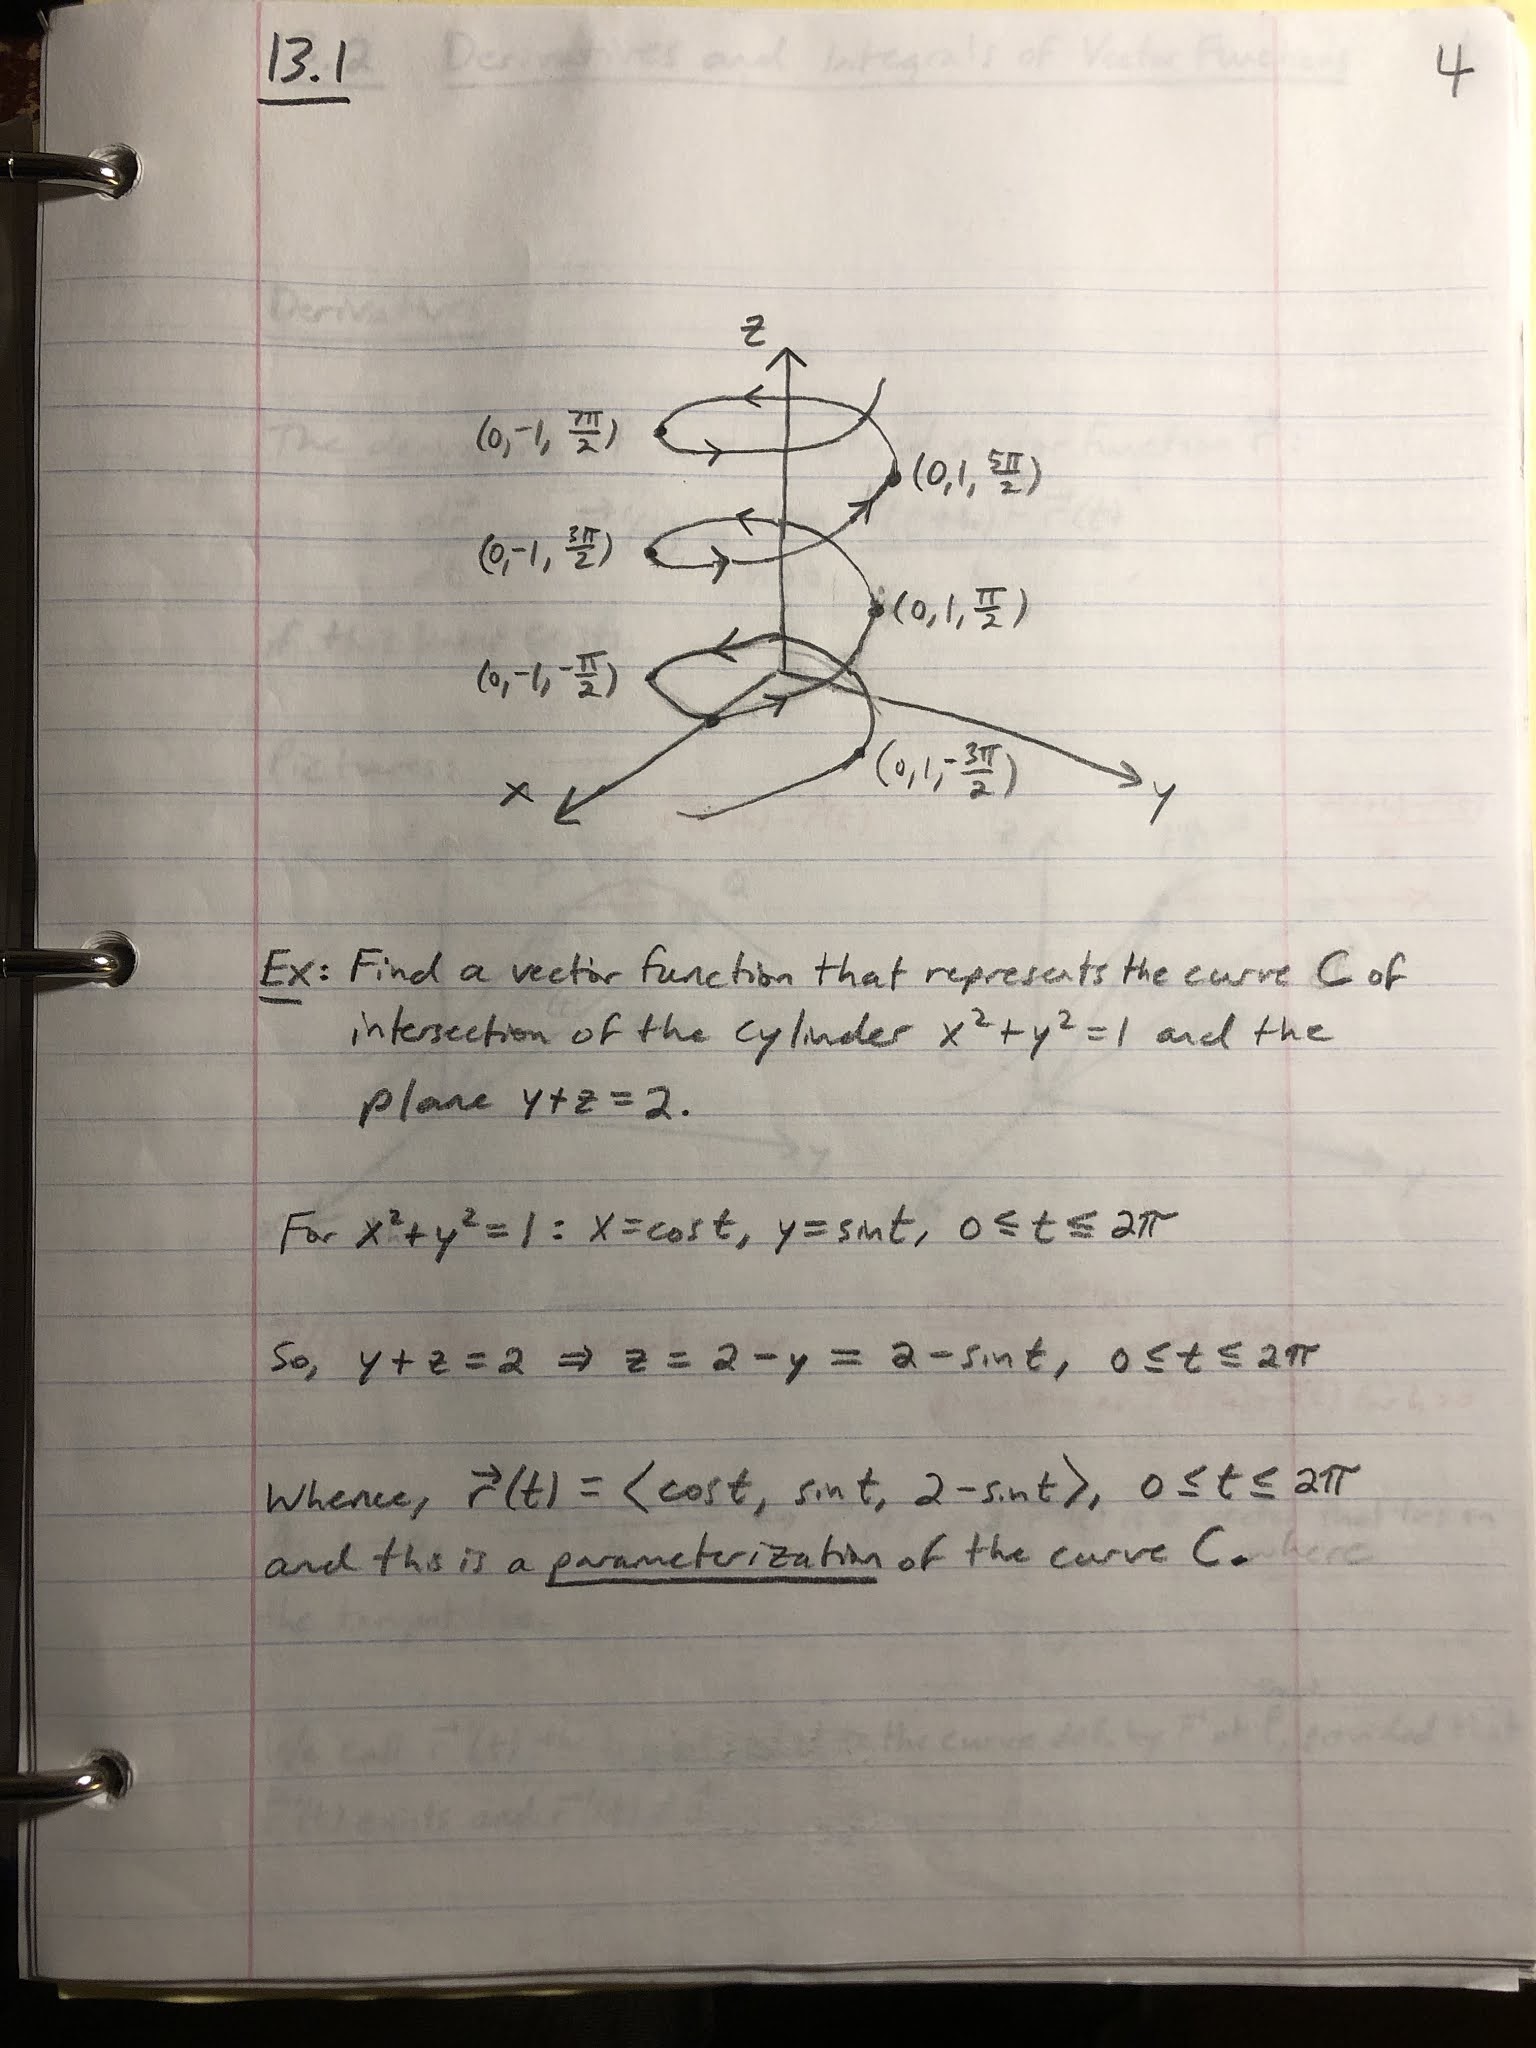 13.1
4
z
(0,-1, 7π/2)
(0,1, 5π/2)
(0,-1, 3π/2)
(0,1, π/2)
(0,-1, -π/2)
(0,1,-3π/2)
x
y
Ex: Find a vector function that represents the curve C of
intersection of the cylinder x²+y²=1 and the
plane y+z=2.
For x²+y²=1: x=cost, y=sint, 0≤t≤2π
So, y+z=2 ⇒ z=2-y = 2-sint, 0≤t≤2π
Whence, r⃗(t) = ⟨cost, sint, 2-sint⟩, 0≤t≤2π
and this is a parameterization of the curve C.